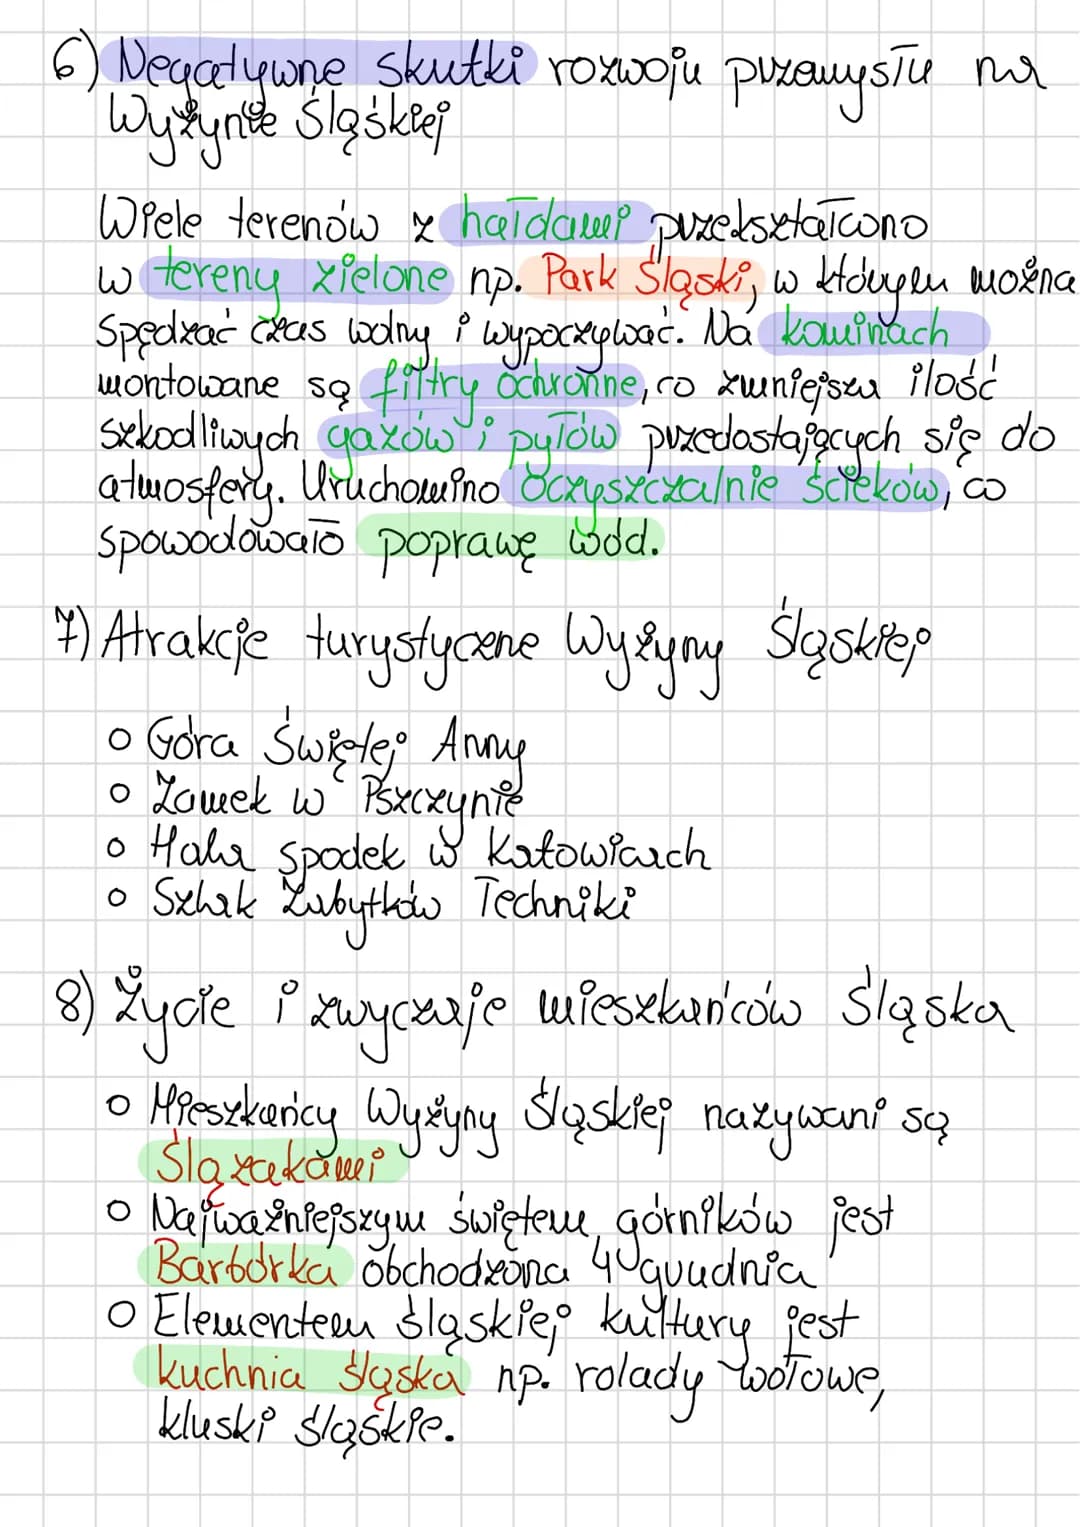 6) Negatywne skutki rozwoju przemysłu na
Wyżynie Śląskiej
Wiele terenów z hałdami przekształcono
w tereny zielone np. Park Śląski, w którym można
spędzać czas wolny i wypoczywać. Na kominach
montowane są filtry ochronne, co zmniejsza ilość
szkodliwych gazów i pyłów przedostających się do
atmosfery. Uruchomino oczyszczalnie ścieków, co
spowodowało poprawę wód.
7) Atrakcje turystyczne Wyżyny Śląskiej
o Góra Świętej Anny
o Zamek w Pszczynie
o Hala spodek w Katowicach
o Szlak Zabytków Techniki
8) Życie i zwyczaje mieszkańców Śląska
o Mieszkańcy Wyżyny Śląskiej nazywani są
Ślązakami
o Najważniejszym świętem górników jest
Barbórka obchodzona 4 grudnia
o Elementem śląskiej kultury jest
kuchnia śląska np. rolady wołowe,
kluski śląskie.